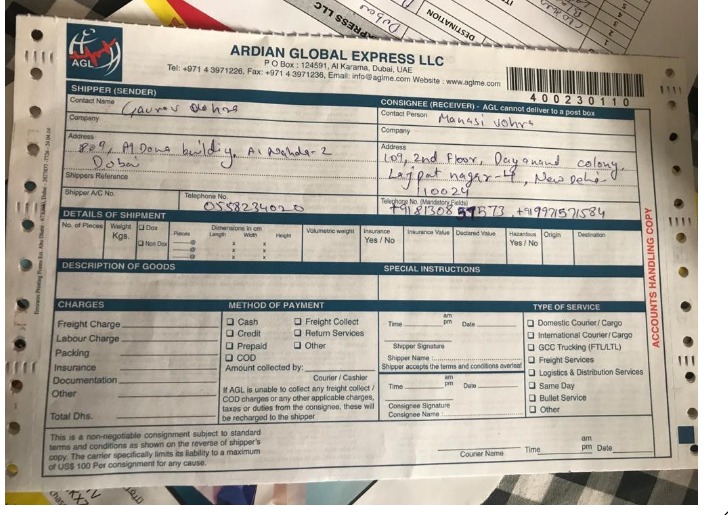 XPRESS LLC
Dubai
DESTINATION
AGL
ARDIAN GLOBAL EXPRESS LLC
P O Box : 124591, Al Karama, Dubai, UAE
Tel: +971 4 3971226, Fax: +971 4 3971236, Email: info@aglme.com Website : www.aglme.com
400230110
SHIPPER (SENDER)
CONSIGNEE (RECEIVER) - AGL cannot deliver to a post box
Contact Name Gaurav
Contact Person Manasi Vohra
Company
Company
Address
Address
809, Al building, Al Nahda-2
Dubai
109, 2nd Floor, Dayanand colony,
Lajpat nagar-4, New Delhi
110024
Shippers Reference
Shipper A/C No.
Telephone No.
0558234020
Telephone No. (Mandatory Fields)
+918130857573, +919971571584
DETAILS OF SHIPMENT
No. of Pieces Weight Kgs. Dox Non Dox Pieces Dimensions in cm Length Width Height Volumetric weight Insurance Yes / No Insurance Value Declared Value Hazardous Yes / No Origin Destination
DESCRIPTION OF GOODS
SPECIAL INSTRUCTIONS
CHARGES
METHOD OF PAYMENT
TYPE OF SERVICE
Freight Charge
Labour Charge
Packing
Insurance
Documentation
Other
Total Dhs.
Cash
Freight Collect
Credit
Return Services
Prepaid
Other
COD
Amount collected by:
Courier / Cashier
If AGL is unable to collect any freight collect /
COD charges or any other applicable charges,
taxes or duties from the consignee, these will
be recharged to the shipper
Time am pm Date
Shipper Signature
Shipper Name :
Shipper accepts the terms and conditions overleaf
Time am pm Date
Consignee Signature
Consignee Name :
Domestic Courier/ Cargo
International Courier/Cargo
GCC Trucking (FTL/LTL)
Freight Services
Logistics & Distribution Services
Same Day
Bullet Service
Other
ACCOUNTS HANDLING COPY
This is a non-negotiable consignment subject to standard
terms and conditions as shown on the reverse of shipper's
copy. The carrier specifically limits its liability to a maximum
of US$ 100 Per consignment for any cause.
Courier Name Time am pm Date